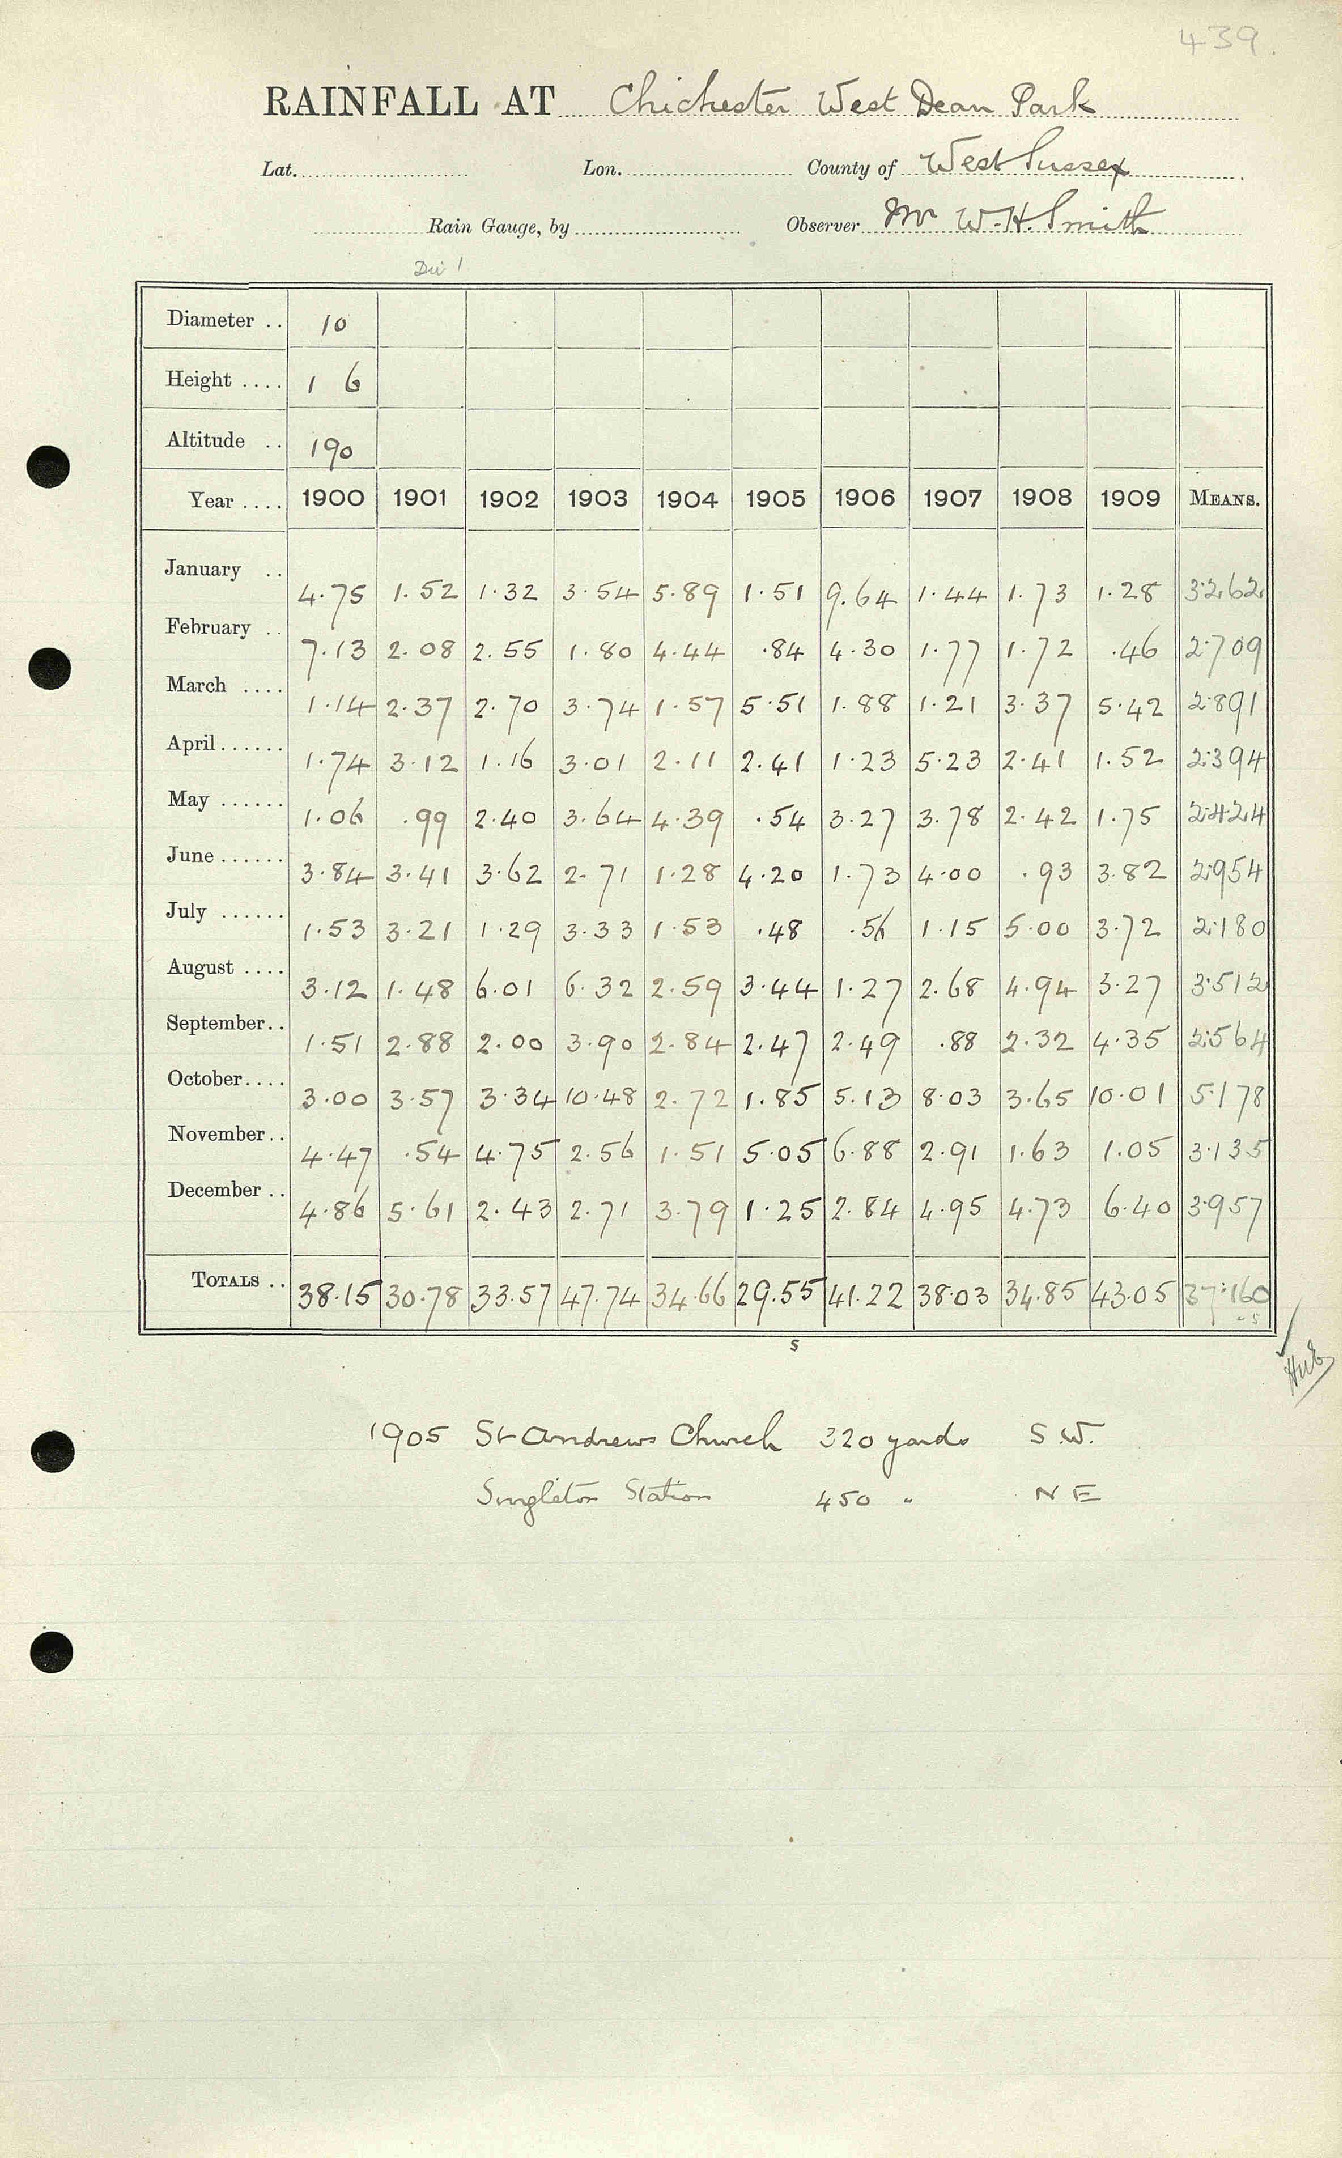 439.
RAINFALL AT Chichester West Dean Park
Lat. Lon. County of West Sussex
Rain Gauge, by Observer Mr W. H. Smith
Div 1
Diameter .. 10
Height .... 1 6
Altitude .. 190
Year .... 1900 1901 1902 1903 1904 1905 1906 1907 1908 1909 MEANS.
January .. 4.75 1.52 1.32 3.54 5.89 1.51 9.64 1.44 1.73 1.28 3.262
February .. 7.13 2.08 2.55 1.80 4.44 .84 4.30 1.77 1.72 .46 2.709
March .... 1.14 2.37 2.70 3.74 1.57 5.51 1.88 1.21 3.37 5.42 2.891
April ...... 1.74 3.12 1.16 3.01 2.11 2.41 1.23 5.23 2.41 1.52 2.394
May ...... 1.06 .99 2.40 3.64 4.39 .54 3.27 3.78 2.42 1.75 2.424
June ...... 3.84 3.41 3.62 2.71 1.28 4.20 1.73 4.00 .93 3.82 2.954
July ...... 1.53 3.21 1.29 3.33 1.53 .48 .56 1.15 5.00 3.72 2.180
August .... 3.12 1.48 6.01 6.32 2.59 3.44 1.27 2.68 4.94 3.27 3.512
September .. 1.51 2.88 2.00 3.90 2.84 2.47 2.49 .88 2.32 4.35 2.564
October .... 3.00 3.57 3.34 10.48 2.72 1.85 5.13 8.03 3.65 10.01 5.178
November .. 4.47 .54 4.75 2.56 1.51 5.05 6.88 2.91 1.63 1.05 3.135
December .. 4.86 5.61 2.43 2.71 3.79 1.25 2.84 4.95 4.73 6.40 3.957
TOTALS .. 38.15 30.78 33.57 47.74 34.66 29.55 41.22 38.03 34.85 43.05 37.160
S
1905 St Andrews Church 320 yards S.W.
Singleton Station 450 " N E